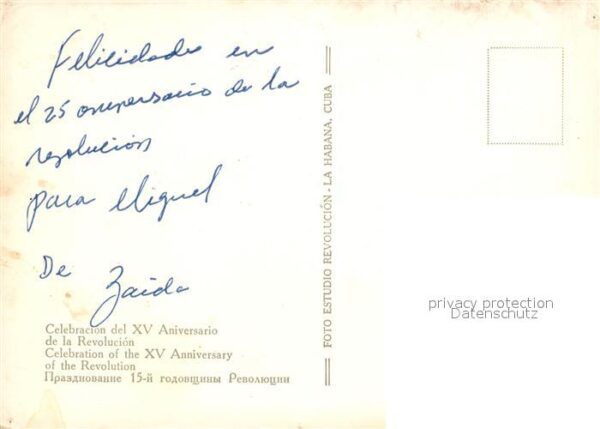 Felicidades en
el 25 aniversario de la
revolución
para Miguel
De Zaida
Celebración del XV Aniversario
de la Revolución
Celebration of the XV Anniversary
of the Revolution
Празднование 15-й годовщины Революции
FOTO ESTUDIO REVOLUCIÓN - LA HABANA, CUBA
privacy protection
Datenschutz